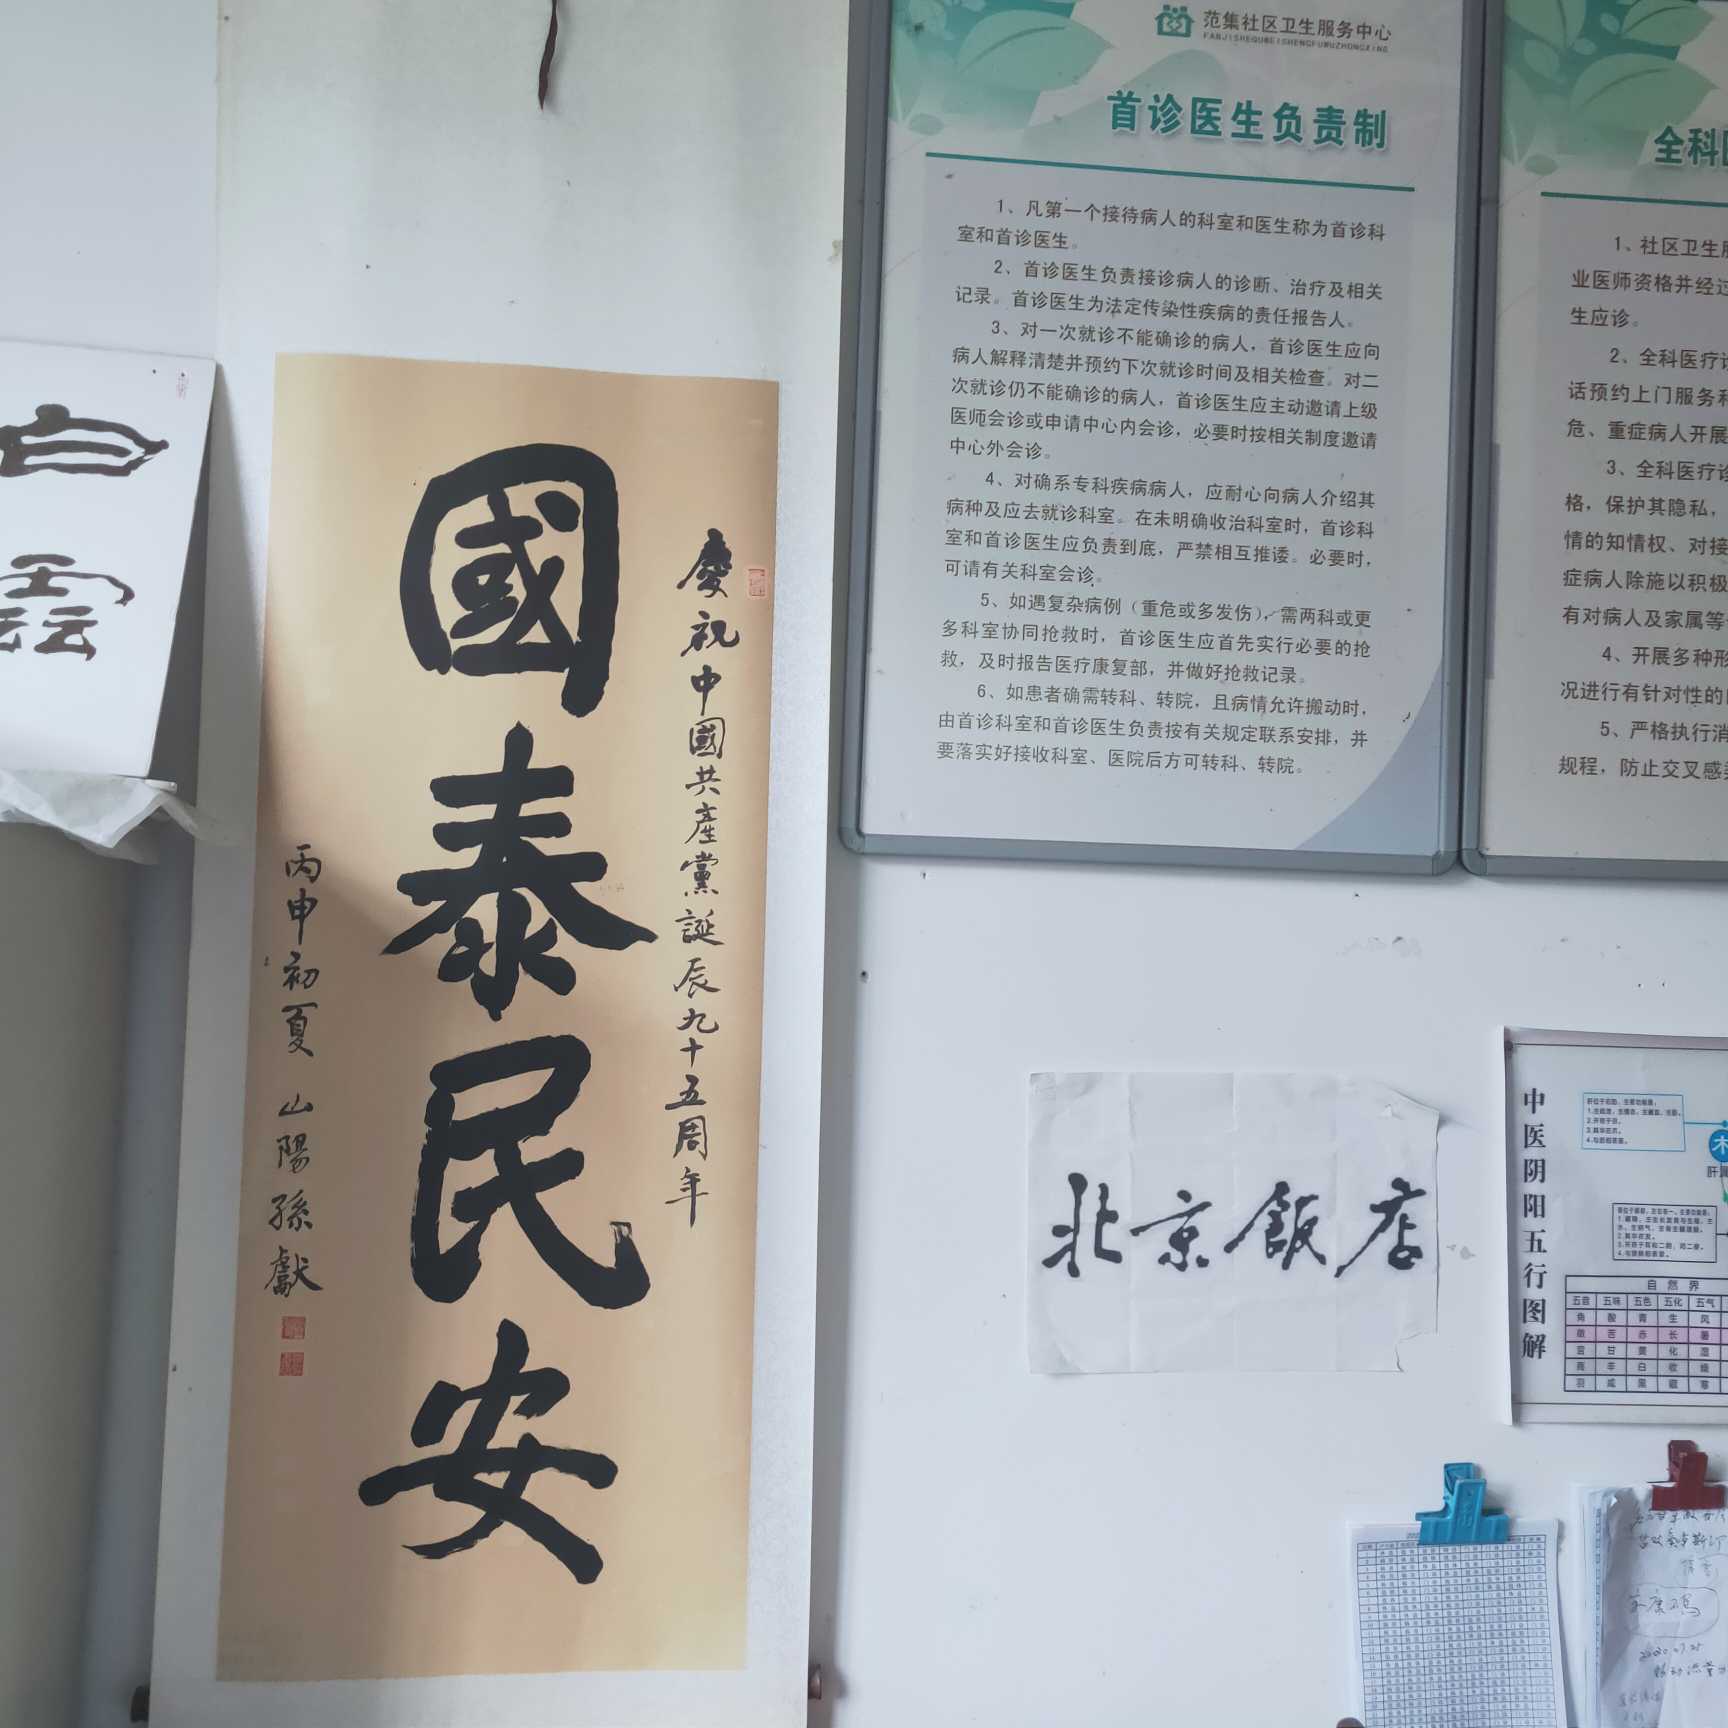 白
雲
國泰民安
慶祝中國共產黨誕辰九十五周年
丙申初夏 山陽孫獻
范集社区卫生服务中心
FANJISHEQUWEISHENGFUWUZHONGXING
首诊医生负责制
1、凡第一个接待病人的科室和医生称为首诊科
室和首诊医生。
2、首诊医生负责接诊病人的诊断、治疗及相关
记录。首诊医生为法定传染性疾病的责任报告人。
3、对一次就诊不能确诊的病人，首诊医生应向
病人解释清楚并预约下次就诊时间及相关检查。对二
次就诊仍不能确诊的病人，首诊医生应主动邀请上级
医师会诊或申请中心内会诊，必要时按相关制度邀请
中心外会诊。
4、对确系专科疾病病人，应耐心向病人介绍其
病种及应去就诊科室。在未明确收治科室时，首诊科
室和首诊医生应负责到底，严禁相互推诿。必要时，
可请有关科室会诊。
5、如遇复杂病例（重危或多发伤），需两科或更
多科室协同抢救时，首诊医生应首先实行必要的抢
救，及时报告医疗康复部，并做好抢救记录。
6、如患者确需转科、转院，且病情允许搬动时，
由首诊科室和首诊医生负责按有关规定联系安排，并
要落实好接收科室、医院后方可转科、转院。
全科
1、社区卫生
业医师资格并经过
生应诊。
2、全科医疗
话预约上门服务和
危、重症病人开展
3、全科医疗诊
格，保护其隐私，
情的知情权、对接
症病人除施以积极
有对病人及家属等
4、开展多种形
况进行有针对性的
5、严格执行消
规程，防止交叉感
北京飯店
中医阴阳五行图解
木
自然界
五音 五味 五色 五化 五气
角 酸 青 生 风
徵 苦 赤 长 暑
宫 甘 黄 化 湿
商 辛 白 收 燥
羽 咸 黑 藏 寒